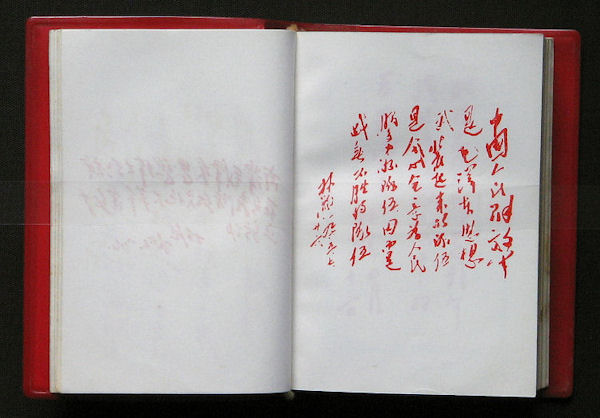 中国人民解放军
是毛泽东思想
武装起来的队伍
是全心全意为人民
服务的队伍因而是
战无不胜的队伍
林彪